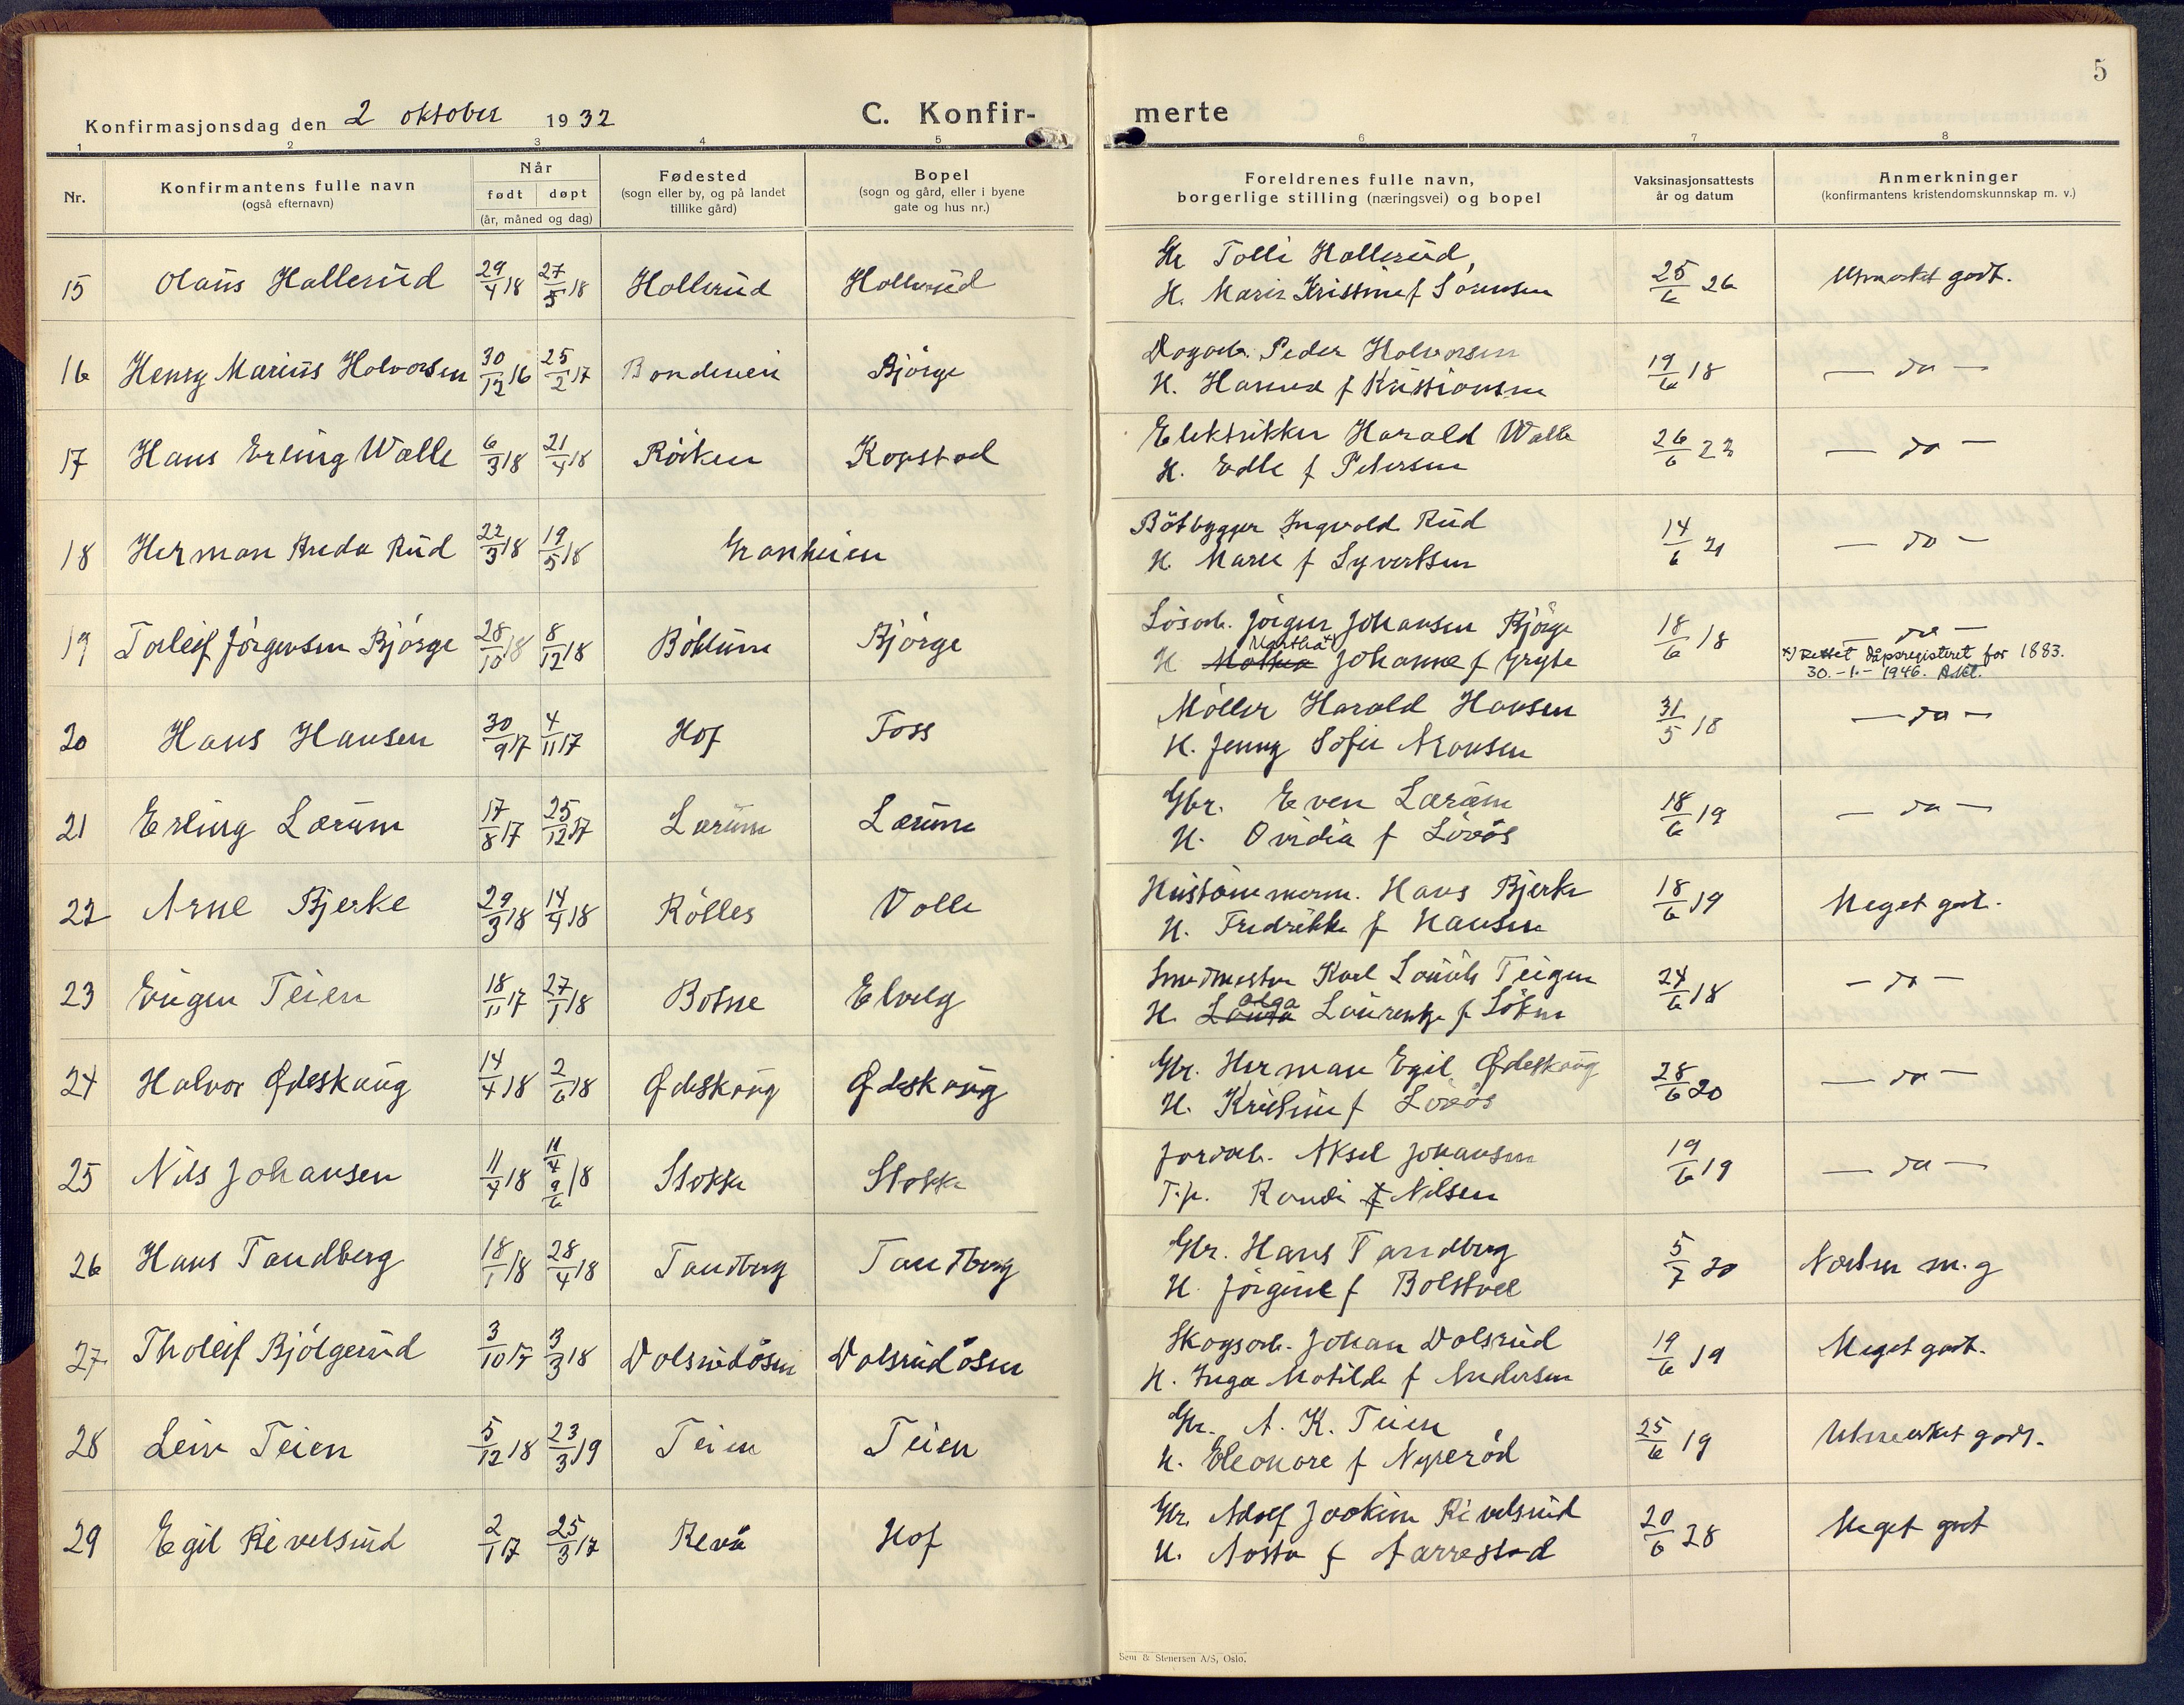 5
Konfirmasjonsdag den 2 oktober 1932
C. Konfir-
merte
1 2 3 4 5 6 7 8
Nr.
Konfirmantens fulle navn
(også efternavn)
Når
født døpt
(år, måned og dag)
Fødested
(sogn eller by, og på landet
tillike gård)
Bopel
(sogn og gård, eller i byene
gate og hus nr.)
Foreldrenes fulle navn,
borgerlige stilling (næringsvei) og bopel
Vaksinasjonsattests
år og datum
Anmerkninger
(konfirmantens kristendomskunnskap m. v.)
15 Olaus Hallerud 29/4 18 27/5 18 Hallerud Hallerud
Gbr. Tolli Hallerud,
H. Marie Kristine f Sørensen
25/6 26 Utmerket godt.
16 Henry Marius Halvorsen 30/12 16 25/2 17 Bjørge
Dagarb. Peder Halvorsen
H. Hanna f Kristiansen
19/6 18 — do —
17 Hans Erling Walle 6/3 18 21/4 18 Röiken Kopstad
Elektriker Harald Walle
H. Edle f Petersen
26/6 23 — do —
18 Herman Rud 22/3 18 19/5 18 Granheim
Båtbygger Ingvald Rud
H. Marie f Syvertsen
14/6 21 — do —
19 Torleif Jörgensen Bjórge 28/10 18 8/12 18 Bjórge
Lösarb. Jörgen Johansen Bjórge
H. Mathea Martha x) Johanne f Gryte
18/6 18 — do —
x) Rettet dåpsregisteret for 1883.
30.-1.- 1946.
20 Hans Hansen 30/9 17 4/11 17 Hof Foss
Möller Harald Hansen
H. Jenny Sofie Aronsen
31/5 18 — do —
21 Erling Lærum 17/8 17 25/12 17 Lærum Lærum
Gbr. Even Lærum
H. Ovidia f Lövås
18/6 19 — do —
22 Arne Bjerke 29/3 18 14/4 18 Rölles Volle
Hustömmerm. Hans Bjerke
H. Fredrikke f Hansen
18/6 19 Meget godt.
23 Eugen Teien 18/11 17 27/1 18 Botne Elvelg
Smedmester Karl Teigen
H. Olga Laurentze f
24/6 18 — do —
24 Halvor Ødeskaug 14/4 18 2/6 18 Ødeskaug Ødeskaug
Gbr. Herman Egil Ødeskaug
H. Kristine f Lövås
28/6 20 — do —
25 Nils Johansen 11/4 18 11/4 9/6 18 Stokke Stokke
Jordarb. Aksel Johansen
T.p. Randi f Nilsen
19/6 19 — do —
26 Hans Tandberg 18/1 18 28/4 18 Tandberg Tandberg
Gbr. Hans Tandberg
H. Jörgine f Bolstvel
5/7 20 Næsten m. g
27 Tholeif Bjólgerud 3/10 17 3/3 18 Dalsrudåsen Dalsrudåsen
Skogsarb. Johan Dalsrud
H. Inga Matilde f Andersen
19/6 19 Meget godt.
28 Leiv Teien 5/12 18 23/3 19 Teien Teien
Gbr. A. K. Teien
H. Eleonore f Nyseröd
25/6 19 Utmerket godt.
29 Egil Revelsrud 2/1 17 25/3 17 Revå Hof
Gbr. Adolf Joakim Revelsrud
H. Aasta f Aarrestad
20/6 28 Meget godt
Sem & Stenersen A/S, Oslo.